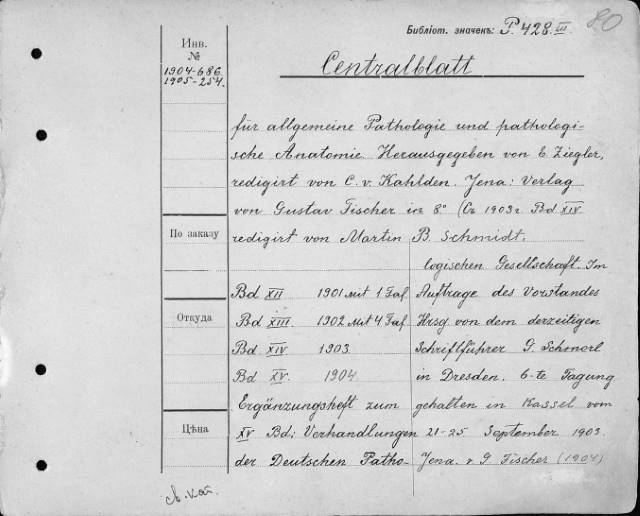 Библіот. значекъ: P. 428 III
80
Инв.
№
1904-686
1905-254.
Centralblatt
für allgemeine Pathologie und pathologi-
sche Anatomie Herausgegeben von E. Ziegler,
redigirt von C. v. Kahlden. Jena: Verlag
von Gustav Fischer in 8° (Съ 1903 г Bd XIV
redigirt von Martin B. Schmidt.
По заказу
Откуда
Цѣна
Bd XII 1901 mit 1 Taf
Bd XIII 1902 mit 4 Taf
Bd XIV 1903
Bd XV. 1904
Ergänzungsheft zum
XV Bd; Verhandlungen
der Deutschen Patho-
logischen Gesellschaft. Im
Auftrage des Vorstandes
Hrsg von dem derzeitigen
Schriftführer G. Schmorl
in Dresden. 6-te Tagung
gehalten in Kassel vom
21-25 September 1903.
Jena. v G Fischer (1904)
св. кат.